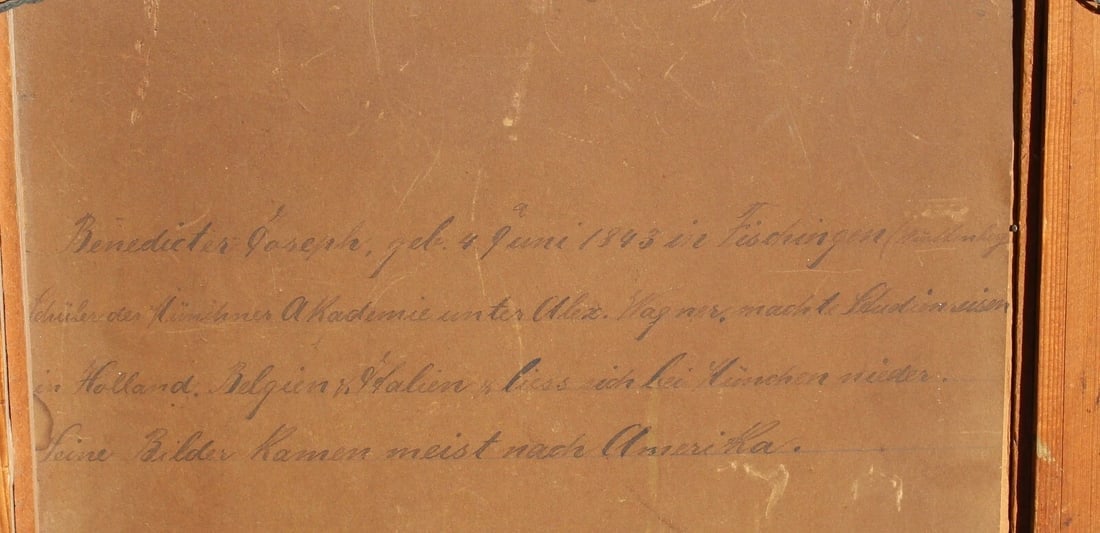 Benedicter Joseph, geb. 4 Juni 1843 in Fischingen
Schüler der Münchner Akademie unter Alex. Wagner, machte Studienreisen
in Holland, Belgien & Italien & liess sich bei München nieder.
Seine Bilder kamen meist nach Amerika.